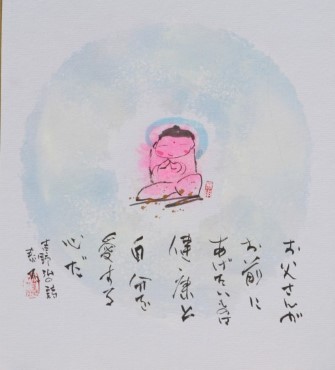 お父さんが
お前に
あげたいものは
健康と
自分を
愛する
心だ
吉野弘の詩